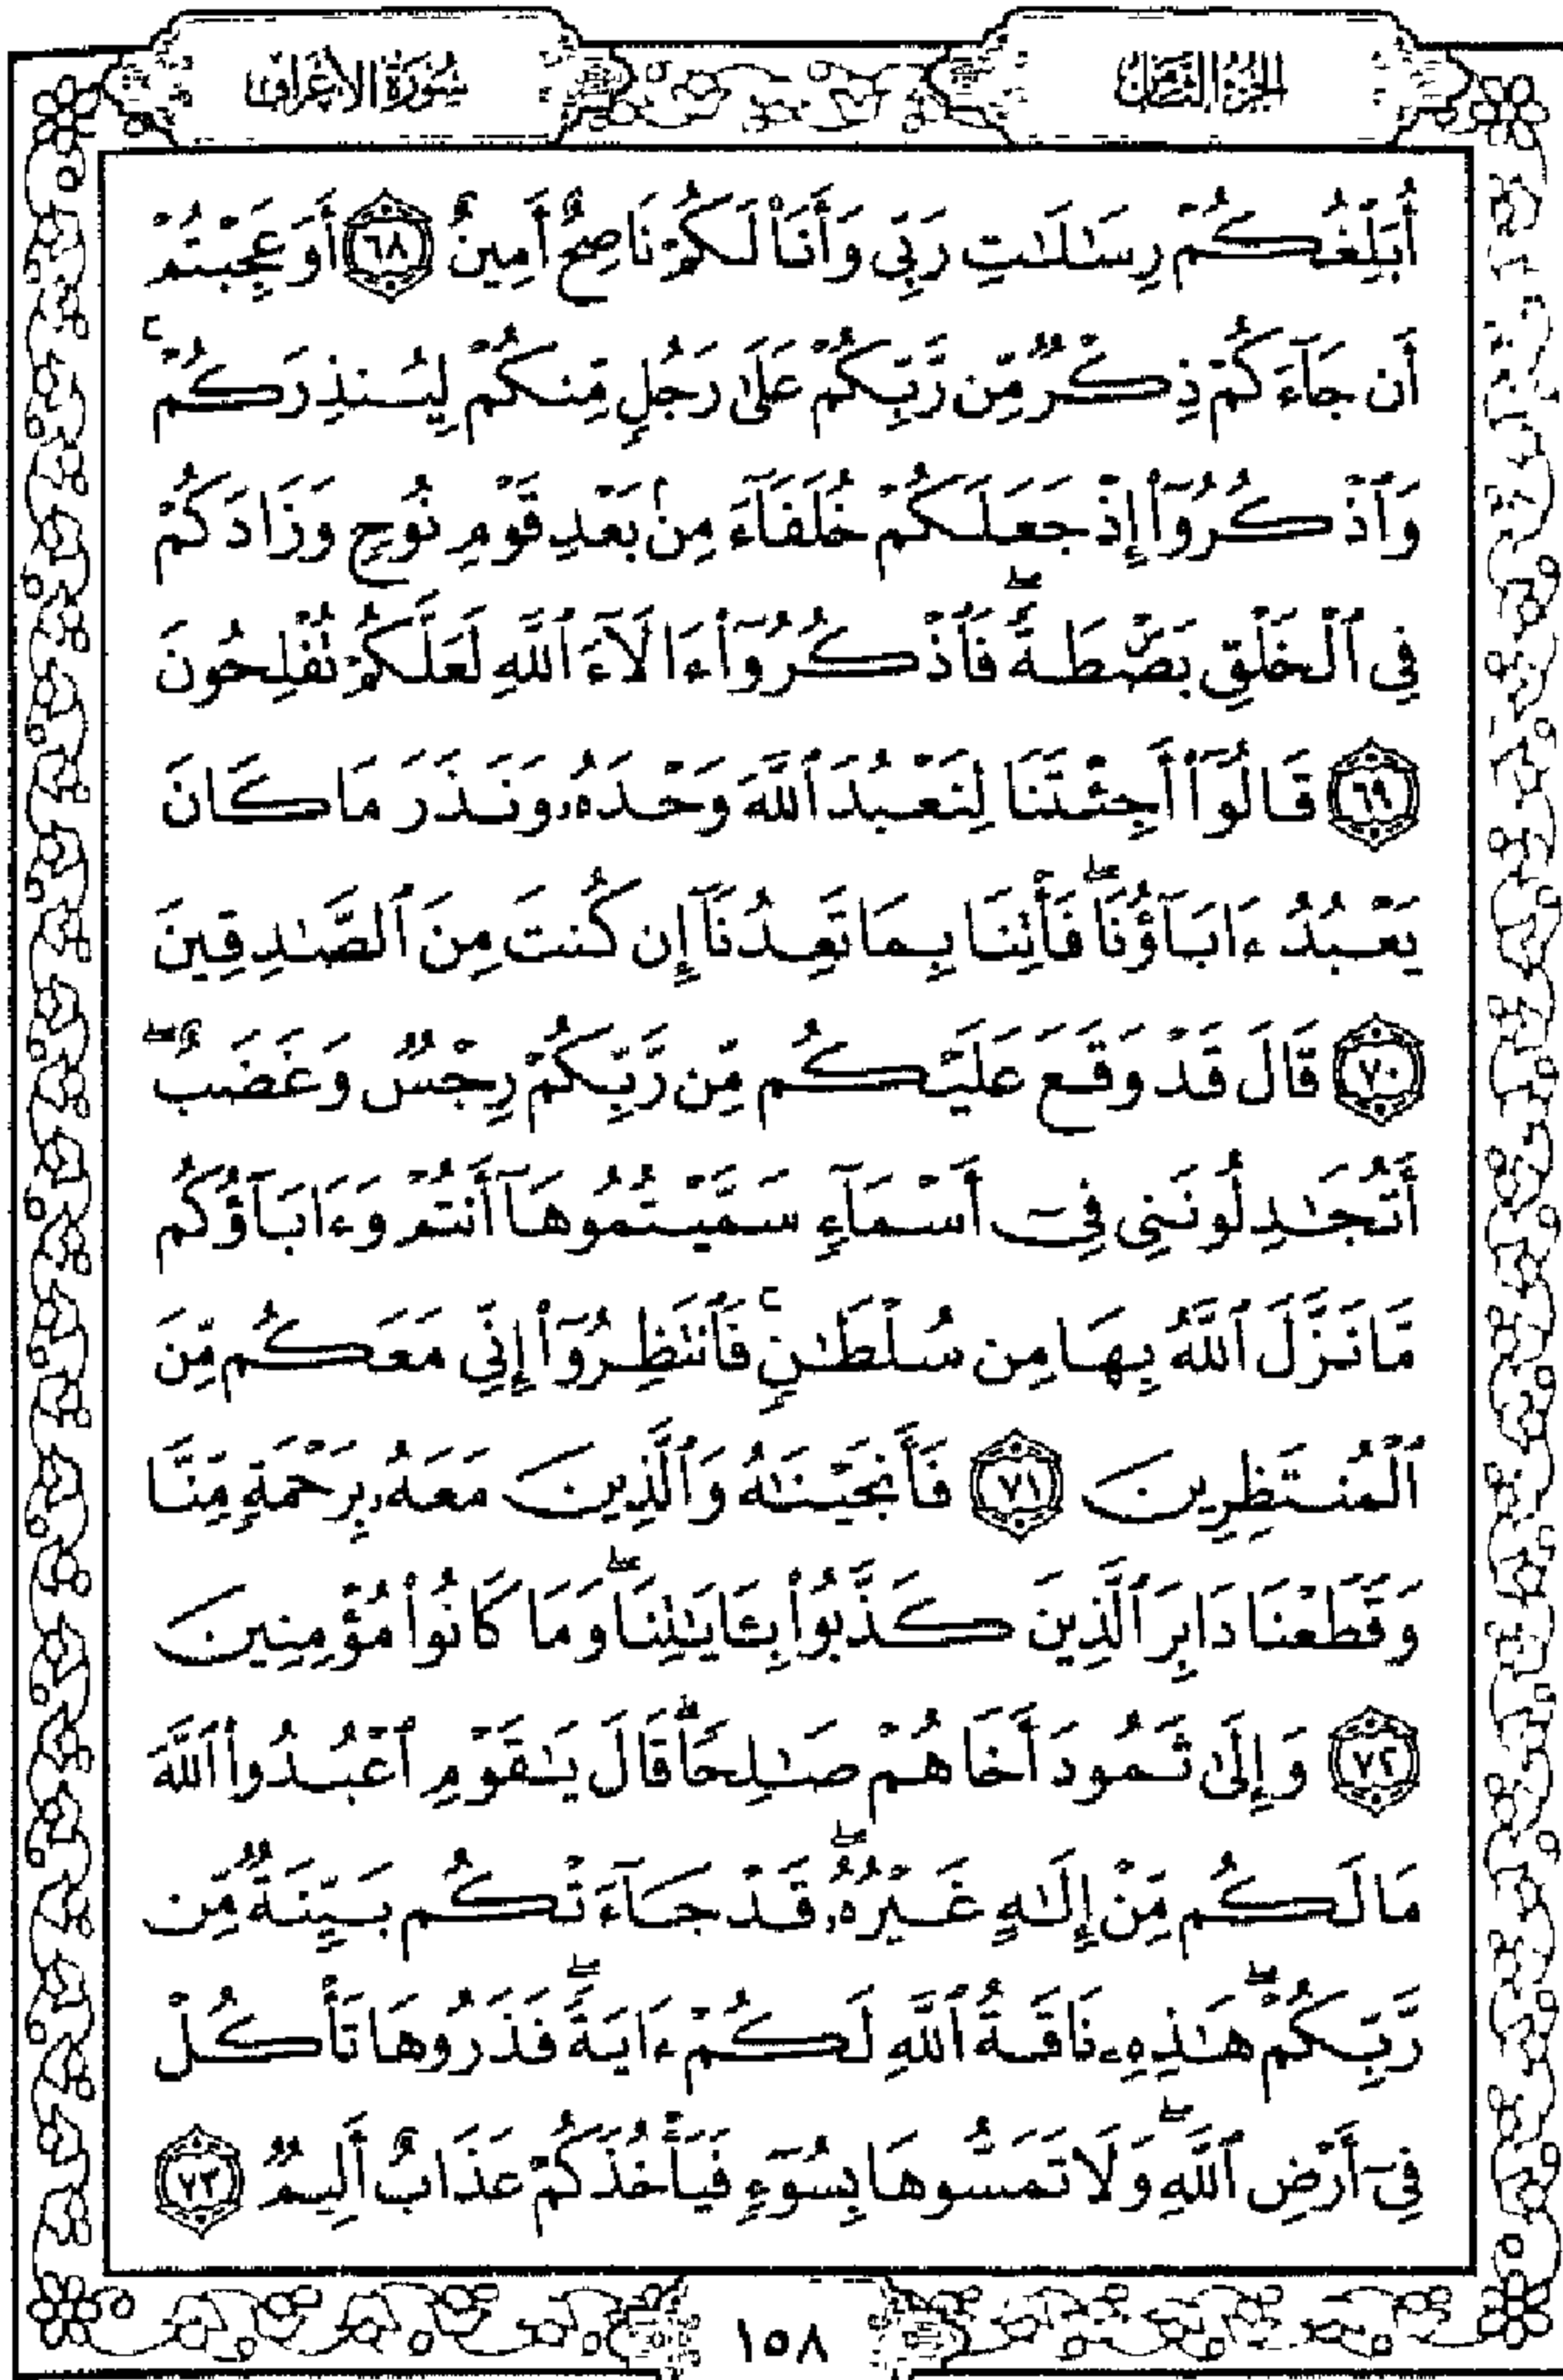 الجزء الثامن
سورة الأعراف
أُبَلِّغُكُمْ رِسَٰلَٰتِ رَبِّي وَأَنَا۠ لَكُمْ نَاصِحٌ أَمِينٌ ٦٨ أَوَعَجِبْتُمْ
أَن جَآءَكُمْ ذِكْرٌ مِّن رَّبِّكُمْ عَلَىٰ رَجُلٍ مِّنكُمْ لِيُنذِرَكُمْ ۚ
وَٱذْكُرُوٓا۟ إِذْ جَعَلَكُمْ خُلَفَآءَ مِنۢ بَعْدِ قَوْمِ نُوحٍ وَزَادَكُمْ
فِي ٱلْخَلْقِ بَصْۜطَةً ۖ فَٱذْكُرُوٓا۟ ءَالَآءَ ٱللَّهِ لَعَلَّكُمْ تُفْلِحُونَ
٦٩ قَالُوٓا۟ أَجِئْتَنَا لِنَعْبُدَ ٱللَّهَ وَحْدَهُۥ وَنَذَرَ مَا كَانَ
يَعْبُدُ ءَابَآؤُنَا ۖ فَأْتِنَا بِمَا تَعِدُنَآ إِن كُنتَ مِنَ ٱلصَّٰدِقِينَ
٧٠ قَالَ قَدْ وَقَعَ عَلَيْكُم مِّن رَّبِّكُمْ رِجْسٌ وَغَضَبٌ ۖ
أَتُجَٰدِلُونَنِي فِيٓ أَسْمَآءٍ سَمَّيْتُمُوهَآ أَنتُمْ وَءَابَآؤُكُم
مَّا نَزَّلَ ٱللَّهُ بِهَا مِن سُلْطَٰنٍ ۚ فَٱنتَظِرُوٓا۟ إِنِّي مَعَكُم مِّنَ
ٱلْمُنتَظِرِينَ ٧١ فَأَنجَيْنَٰهُ وَٱلَّذِينَ مَعَهُۥ بِرَحْمَةٍ مِّنَّا
وَقَطَعْنَا دَابِرَ ٱلَّذِينَ كَذَّبُوا۟ بِـَٔايَٰتِنَا ۖ وَمَا كَانُوا۟ مُؤْمِنِينَ
٧٢ وَإِلَىٰ ثَمُودَ أَخَاهُمْ صَٰلِحًا ۗ قَالَ يَٰقَوْمِ ٱعْبُدُوا۟ ٱللَّهَ
مَا لَكُم مِّنْ إِلَٰهٍ غَيْرُهُۥ ۖ قَدْ جَآءَتْكُم بَيِّنَةٌ مِّن
رَّبِّكُمْ ۖ هَٰذِهِۦ نَاقَةُ ٱللَّهِ لَكُمْ ءَايَةً ۖ فَذَرُوهَا تَأْكُلْ
فِيٓ أَرْضِ ٱللَّهِ ۖ وَلَا تَمَسُّوهَا بِسُوٓءٍ فَيَأْخُذَكُمْ عَذَابٌ أَلِيمٌ ٧٣
١٥٨